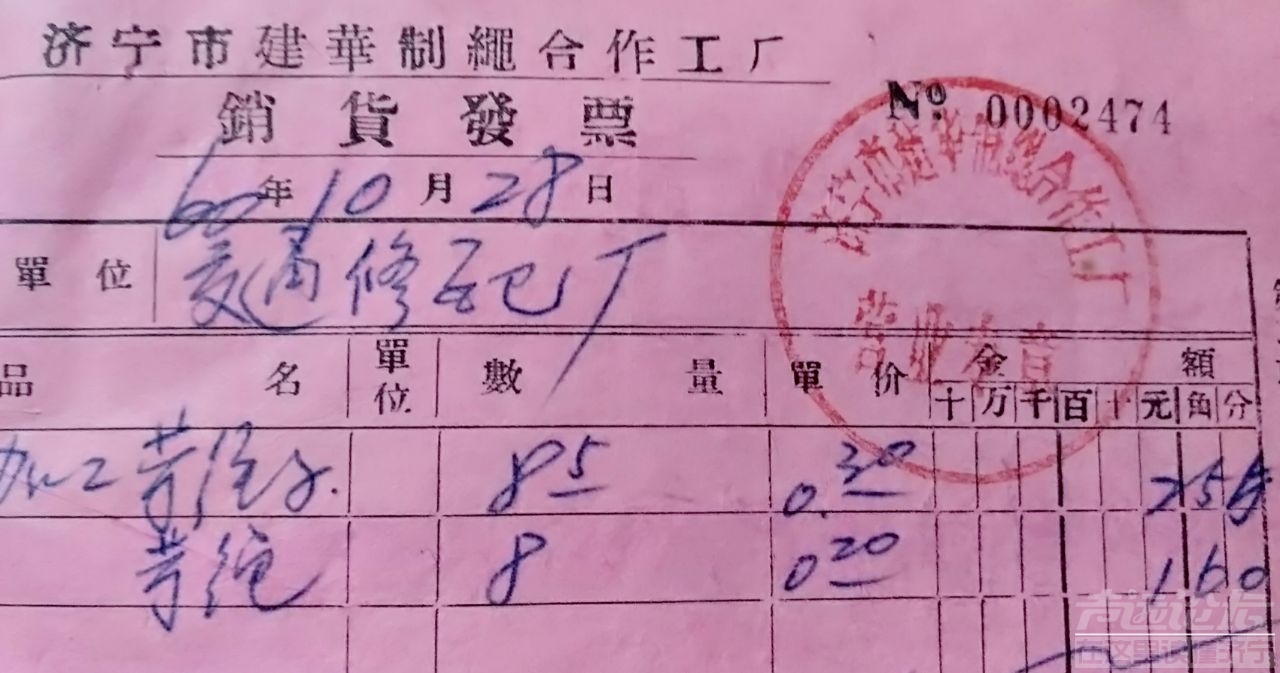 济宁市建華制繩合作工厂
銷貨發票
№ 0002474
60年10月28日
單位 交通修配厂
济宁市建华制绳合作工厂
品名 單位 數量 單价 金額
十万千百十元角分
加工苘 8 5 0.30 2 5 5
苘绳 8 0 20 1 6 0
在这里读懂济宁